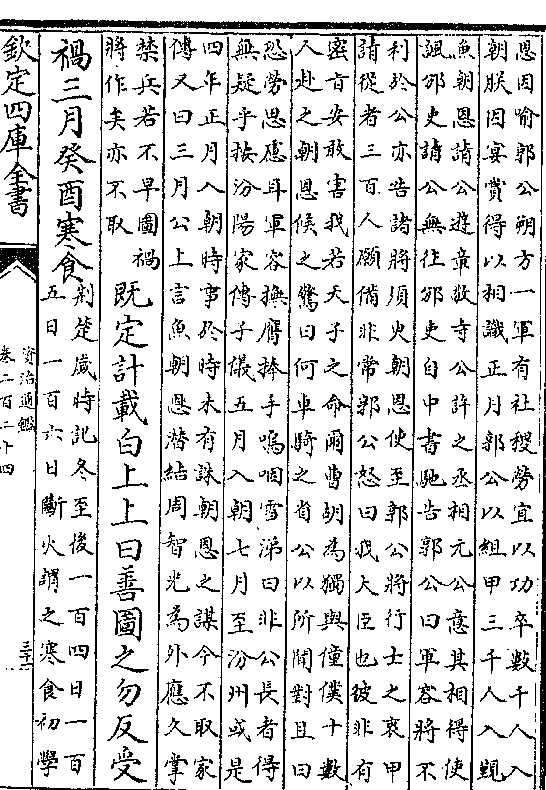 恩因喻郭公朔方一軍有社稷勞宜以功卒數千人入
朝朕因宴賞得以相識正月郭公以組甲三千人入覲
魚朝恩請公遊章敬寺公許之丞相元公意其相得使
諷邠吏請公無往邠吏自中書馳告郭公曰軍容將不
利於公亦告諸將須臾朝恩使至郭公將行士之衷甲
請從者三百人願備非常郭公怒曰我大臣也彼非有
密旨安敢害我若天子之命爾曹胡為獨與僮僕十數
人赴之朝恩候之驚曰何車騎之省公以所聞對且曰
恐勞思慮耳軍容撫膺捧手嗚咽雪涕曰非公長者得
無疑乎按汾陽家傳子儀五月入朝七月至汾州或是
四年正月入朝時事於時未有誅朝恩之謀今不取家
傳又曰三月公上言魚朝恩潜結周智光為外應久掌
禁兵若不早圖禍
將作矣亦不取
既定計載白上上曰善圖之勿反受
禍三月癸酉寒食
荆楚歲時記冬至後一百四日一百
五日一百六日斷火謂之寒食初學
欽定四庫全書
資治通鑑
卷二百二十四